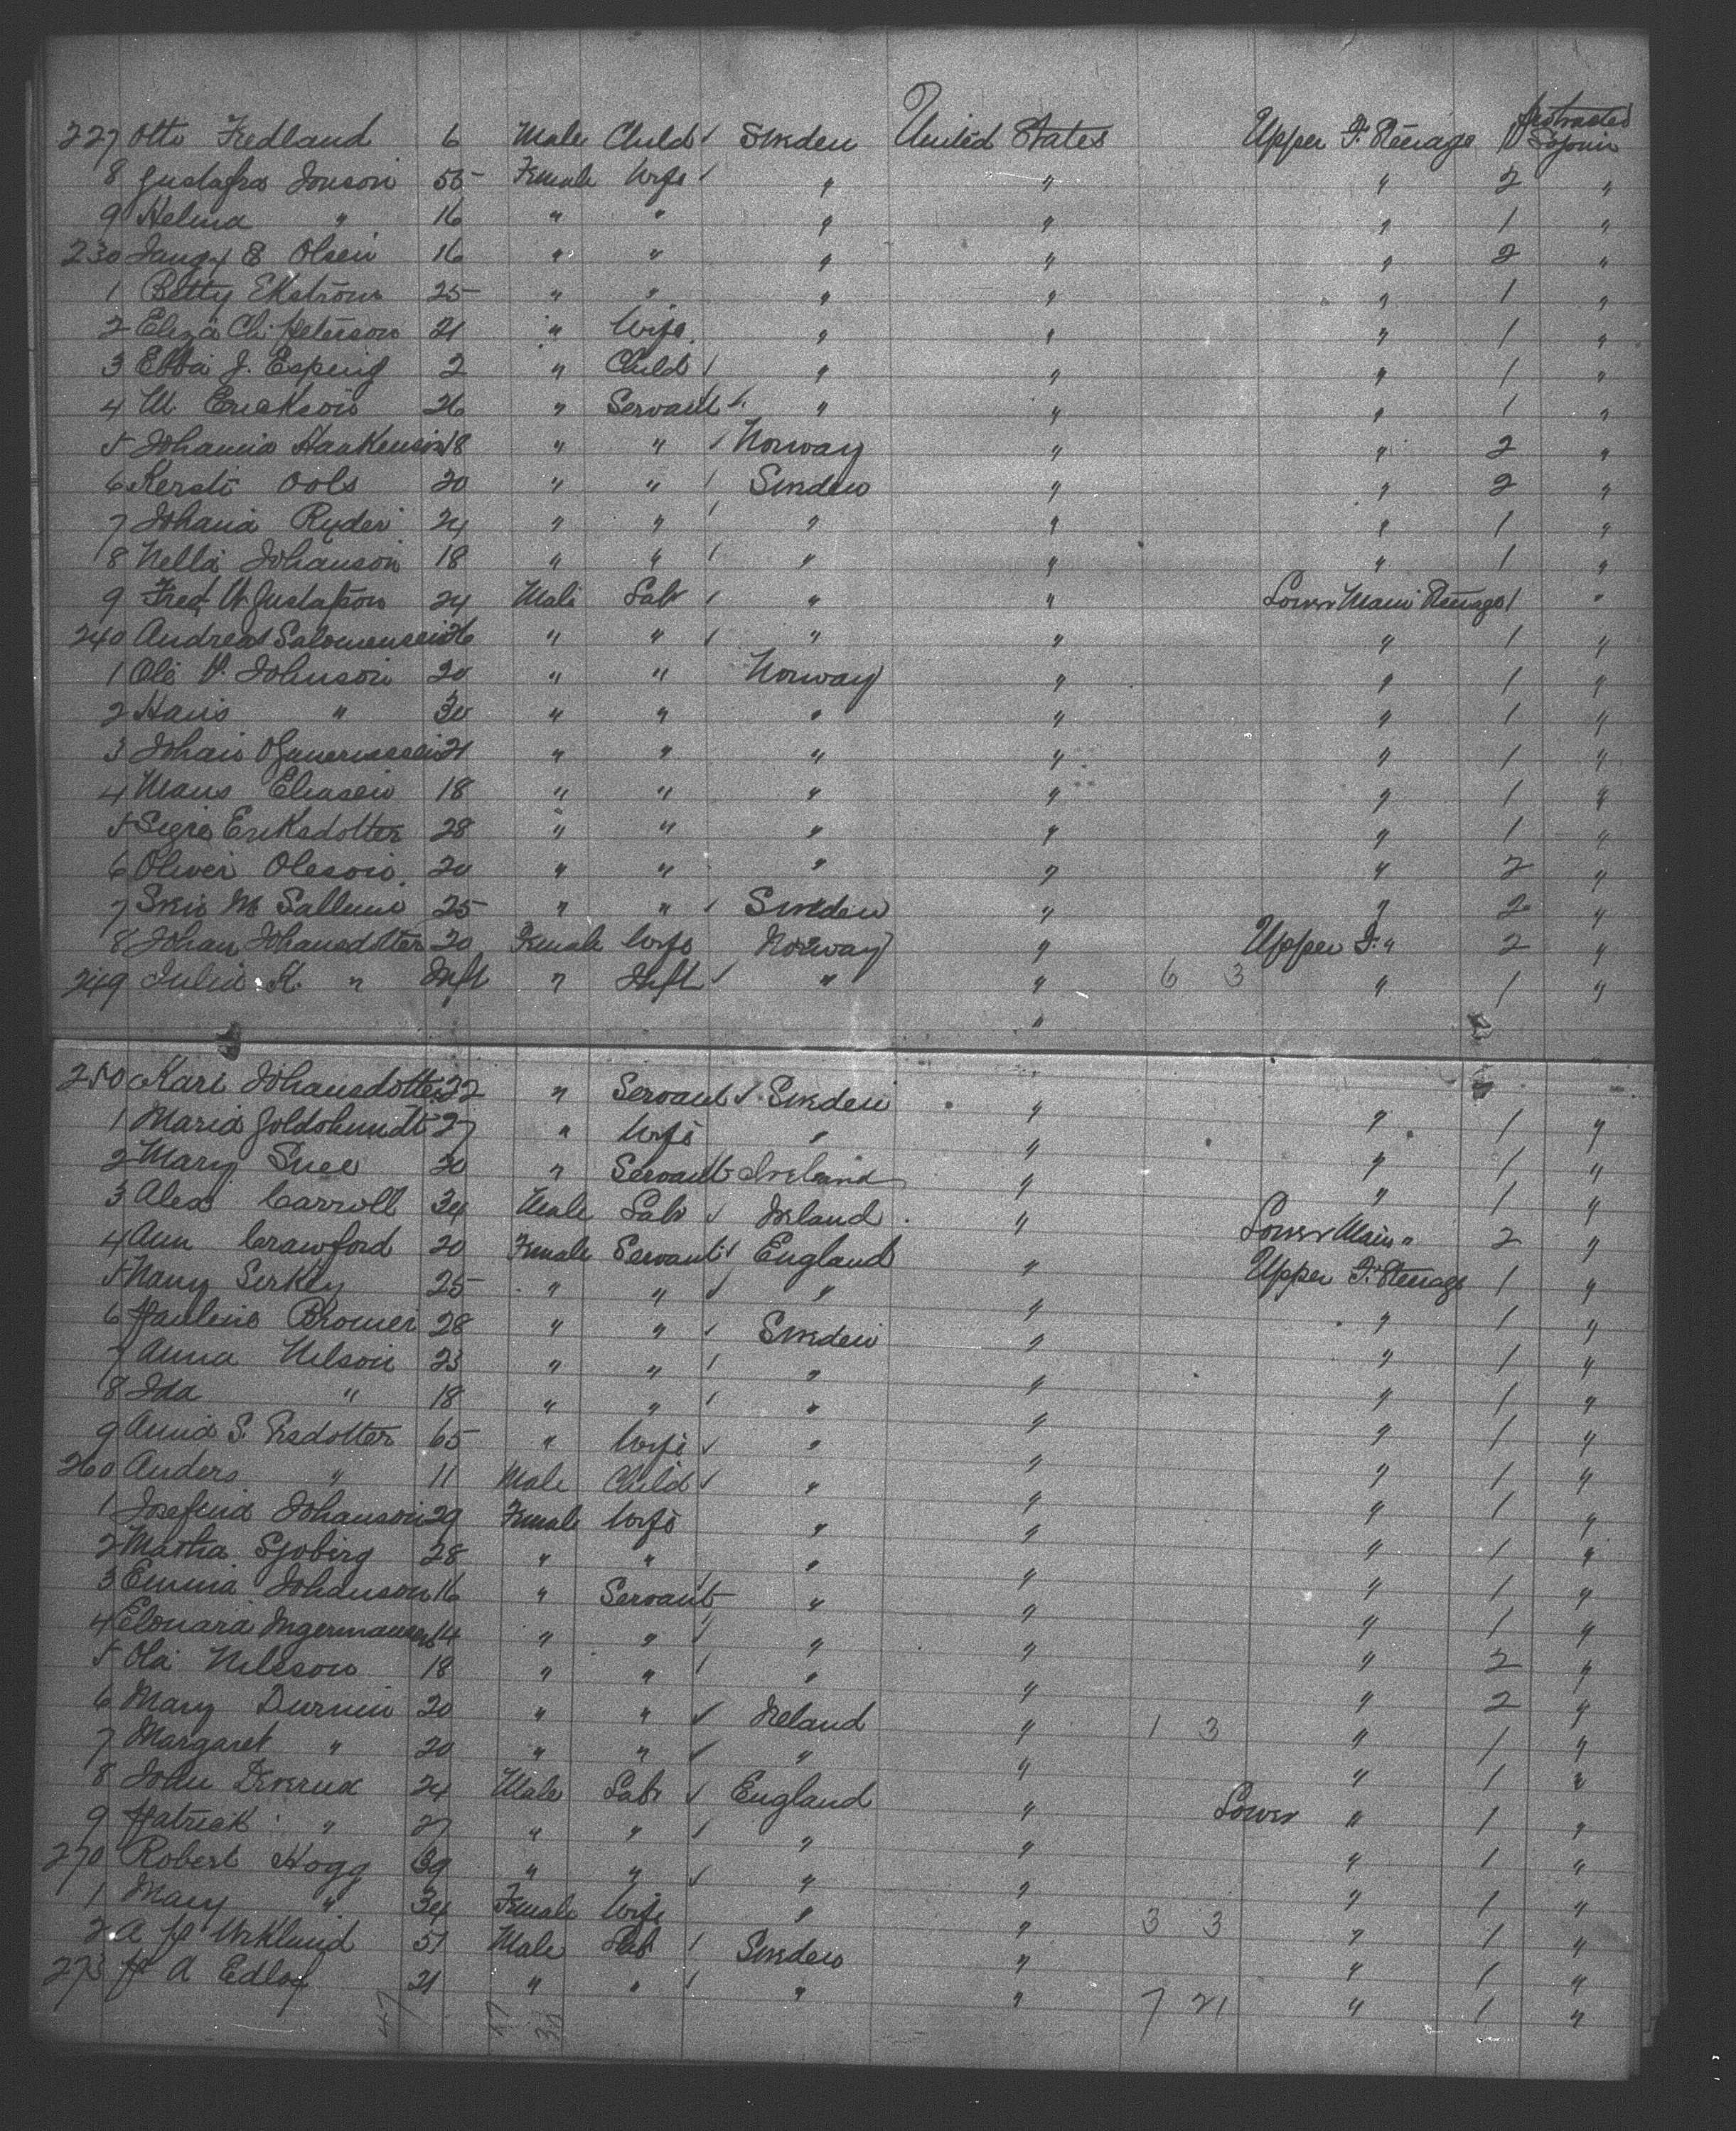 227 Otto Fredland 6 Male Child Sweden United States Upper F. Steerage 1 Protracted Sojourn
8 Gustafva Jonson 55 Female Wife " " " 2 "
9 Helma " 16 " " " " " 1 "
230 E Olsen 16 " " " " " 2 "
1 Betty Ekstrom 25 " " " " " 1 "
2 Eliza Ch. Peterson 21 " Wife " " " 1 "
3 Ebba J. Esping 2 " Child " " " 1 "
4 M Erickson 26 " Servant " " " 1 "
5 Johanna Haakenson 18 " " Norway " " 2 "
6 Kersti Ools 20 " " Sweden " " 2 "
7 Johana Ryder 24 " " " " " 1 "
8 Nella Johanson 18 " " " " " 1 "
9 Fred W Gustafson 24 Male Labr " " Lower Main Steerage 1 "
240 Andreas Salomensen 26 " " " " " 1 "
1 Ole H. Johnson 20 " " Norway " " 1 "
2 Hans " 30 " " " " " 1 "
3 Johan 21 " " " " " 1 "
4 Mans Eliasen 18 " " " " " 1 "
5 Sigre Eriksdotter 28 " " " " " 1 "
6 Oliver Oleson 20 " " " " " 2 "
7 Sven M Sallum 25 " " Sweden " " 2 "
8 Johan Johansdotter 20 Female Wife Norway " Upper F. " 2 "
249 Julia K. " Inft " Inft " " 6 3 " 1 "
"
250 Kari Johansdotter 22 " Servant Sweden " " 1 "
1 Maria Goldshmidt 27 " Wife " " " 1 "
2 Mary 20 " Servant Ireland " " 1 "
3 Alex Carroll 34 Male Labr Ireland " Lower Main " 2 "
4 Ann Crawford 20 Female Servant England " Upper F. Steerage 1 "
5 Nany Serkey 25 " " " " " 1 "
6 Pauline Bromer 28 " " Sweden " " 1 "
7 Anna Nelson 23 " " " " " 1 "
8 Ida " 18 " " " " " 1 "
9 Anna S. Ersdotter 65 " Wife " " " 1 "
260 Anders " 11 Male Child " " " 1 "
1 Josefina Johanson 29 Female Wife " " " 1 "
2 Martha Sjoberg 28 " " " " " 1 "
3 Emma Johanson 16 " Servant " " " 1 "
4 Elonara Ingermansen 14 " " " " " 2 "
5 Ola Nilsson 18 " " " " " 2 "
6 Mary Durnin 20 " " Ireland " 1 3 " 1 "
7 Margaret " 20 " " " " " 1 "
8 John Deverux 24 Male Labr England " Lower " 1 "
9 Patrick " 27 " " " " " 1 "
270 Robert Hogg 39 " " " " " 1 "
1 Mary " 34 Female Wife " " 3 3 " 1 "
2 A P Wiklund 51 Male Lab Sweden " " 1 "
273 P A Edlof 21 " " " " 7 21 " 1 "
47 17 30